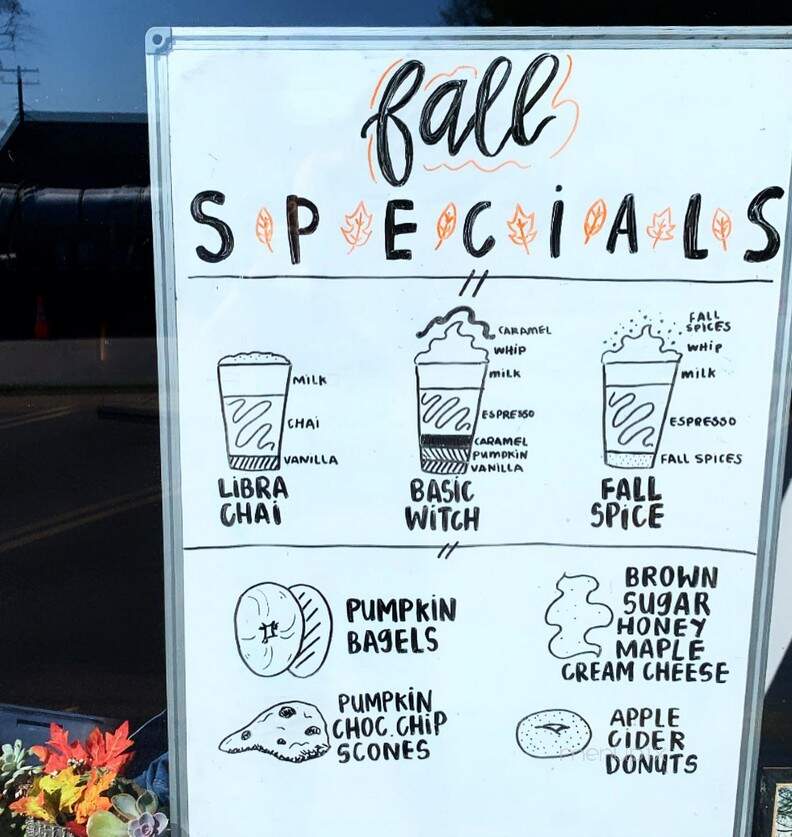 fall
SPECIALS
MILK
CHAI
VANILLA
LIBRA
CHAI
CARAMEL
WHIP
MILK
ESPRESSO
CARAMEL
PUMPKIN
VANILLA
BASIC
WITCH
FALL
SPICES
WHIP
MILK
ESPRESSO
FALL SPICES
FALL
SPICE
PUMPKIN
BAGELS
BROWN
SUGAR
HONEY
MAPLE
CREAM CHEESE
PUMPKIN
CHOC. CHIP
SCONES
APPLE
CIDER
DONUTS